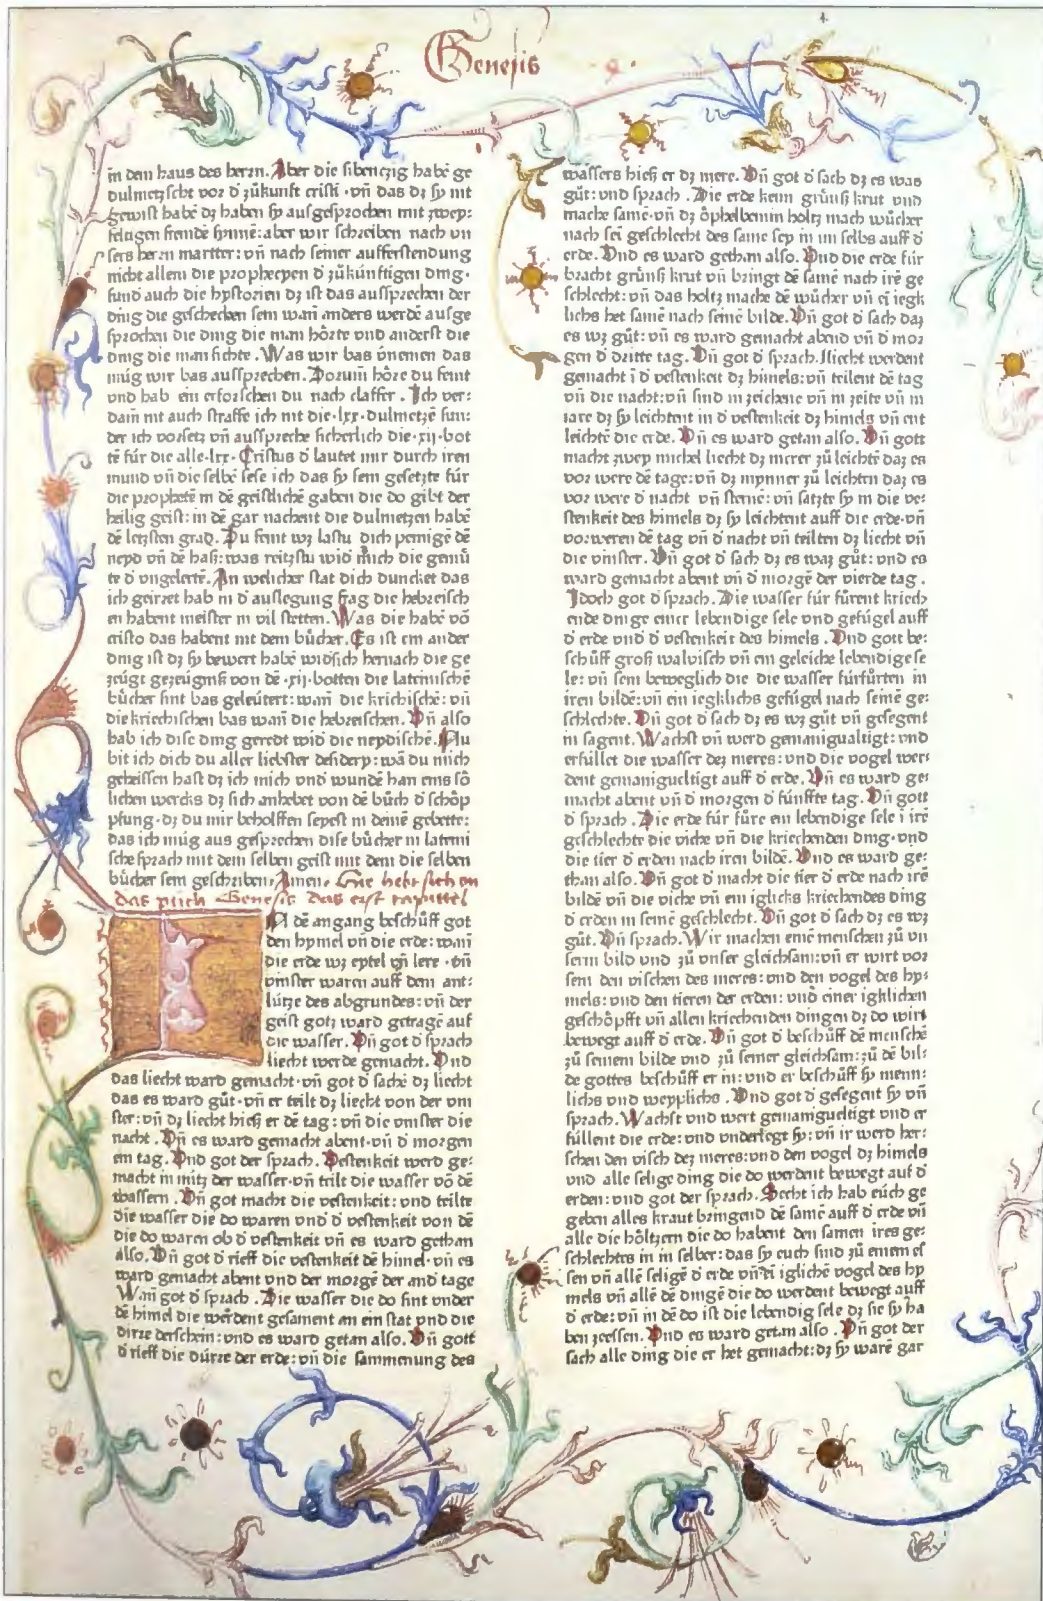 Genesis
in dem haus des herrn. Aber die sibenczig habē ge
dulmetzscht vor d̕ zůkunft cristi · vn̄ das dz sy nit
gewist habē dz haben sy ausgesprochen mit zwey:
felügen fremdē synnē: aber wir schreiben nach vn
sers herrn martter: vn̄ nach seiner aufferstendung
nicht allein die propheceyen d̕ zůkünftigen ding ·
sund auch die hystorien dz ist das aussprechen der
ding die geschechen sein wan̄ anders werdē ausge
sprochen die ding die man hörte vnd anderst die
ding die man sichte . Was wir bas v̄nemen das
müg wir bas aussprechen . Dorum̄ höre du feint
vnd hab ein erforschen du nach claffer . Ich ver:
dam̄ nit auch straffe ich nit die · lxx · dulmetzē sun:
der ich vorsetz vn̄ ausspreche sicherlich die · xij · bot
tē für die alle · lxx · Cristus d̕ lautet mir durch iren
mund vn̄ die selbē lese ich das sy sein gesetzte für
die prophetē in dē geistlichē gaben die do gibt der
heilig geist: in dē gar nachent die dulmetzen habē
dē letzsten grad . Du feint wz lastu dich peinigē dē
neyd vn̄ dē haß: was reitzstu wid̕ mich die gemü
te d̕ vngelerte . An welicher stat dich duncket das
ich geirret hab in d̕ auslegung frag die hebreisch
en habent meister in vil stetten . Was die habē vō
cristo das habent nit dem bücher . Es ist ein ander
ding ist dz sy bewert habē wid̕sich hernach die ge
zeügt gezeügniß von dē · xij · botten die lateinischē
bücher sint bas geleütert: wan̄ die krichischē: vn̄
die kriechischen bas wan̄ die hebreischen . Vn̄ also
hab ich dise ding geredt wid̕ die neydischē . Nu
bit ich dich du aller liebster desidery: wā du mich
geheissen hast dz ich mich vnd̕ wundē han eins sö
lichen wercks dz sich anhebet von dē bůch d̕ schöp
pfung · dz du mir beholffen seyest in deinē gebette:
das ich müg aus gesprechen dise bücher in lateini
sche sprach mit dem selben geist mit dem die selben
bücher sein geschriben · Amen · Hie hebt sich an
das půch Genesis das erst capittel
N dē angang beschůff got
den hymel vn̄ die erde: wan̄
die erde wz eytel vn̄ lere · vn̄
vinster waren auff dem ant:
lütze des abgrundes: vn̄ der
geist gotz ward getragē auf
die wasser . Vn̄ got d̕ sprach
liecht werde gemacht . Vnd
das liecht ward gemacht · vn̄ got d̕ sachē dz liecht
das es ward gůt · vn̄ er teilt dz liecht von der vin
ster: vn̄ dz liecht hieß er dē tag: vn̄ die vinster die
nacht . Vn̄ es ward gemacht abent · vn̄ d̕ morgen
ein tag . Vnd got der sprach . Vestenkeit werd ge:
macht in mitz der wasser · vn̄ teilt die wasser vō dē
wassern . Vn̄ got macht die vestenkeit: vnd teilte
die wasser die do waren vnd̕ d̕ vestenkeit von dē
die do waren ob d̕ vestenkeit vn̄ es ward gethan
also . Vn̄ got d̕ rieff die vestenkeit dē himel · vn̄ es
ward gemacht abent vnd der morgē der and̕ tage
Wan̄ got d̕ sprach . Die wasser die do sint vnder
dē himel die werdent gesament an ein stat vnd die
dürre derschein: vnd es ward getan also . Vn̄ gott
d̕ rieff die dürre der erde: vn̄ die sammenung des
wassers hieß er dz mere . Vn̄ got d̕ sach dz es was
gůt: vnd sprach . Die erde keim grünß krut vnd
mache samē · vn̄ dz öphelbemin holtz mach wücher
nach sei geschlecht des same sey in im selbs auff d̕
erde . Vnd es ward gethan also . Vnd die erde für
bracht grünß krut vn̄ bringt dē samē nach irē ge
schlecht: vn̄ das holtz mache dē wücher vn̄ ei iegk
lichs het samē nach seinē bilde . Vn̄ got d̕ sach daz
es wz gůt: vn̄ es ward gemacht abend vn̄ d̕ mor
gen d̕ dritte tag . Vn̄ got d̕ sprach . Liecht werdent
gemacht ī d̕ vestenkeit dz himels: vn̄ teilent dē tag
vn̄ die nacht: vn̄ sind in zeichenē vn̄ in zeite vn̄ in
iare dz sy leichtent in d̕ vestenkeit dz himels vn̄ ent
leichtē die erde . Vn̄ es ward getan also . Vn̄ gott
macht zwey michel liecht dz merer zů leichtē daz es
vor were dē tage: vn̄ dz mynner zů leichten daz es
vor were d̕ nacht vn̄ sternē: vn̄ satzte sy in die ve:
stenkeit des himels dz sy leichtent auff die erde · vn̄
vorweren dē tag vn̄ d̕ nacht vn̄ teilten dz liecht vn̄
die vinster . Vn̄ got d̕ sach dz es waz gůt: vnd es
ward gemacht abent vn̄ d̕ morgē der vierde tag .
Idoch got d̕ sprach . Die wasser für fürent kriech
ende dinge einer lebendige sele vnd gefügel auff
d̕ erde vnd d̕ vestenkeit des himels . Vnd gott be:
schůff groß walvisch vn̄ ein geleiche lebendige se
le: vn̄ sein beweglich die die wasser fürfürten in
iren bildē: vn̄ ein iegklichs gefügel nach seinē ge:
schlechte . Vn̄ got d̕ sach dz es wz gůt vn̄ gesegent
in sagent . Wachst vn̄ werd gemanigualtigt: vnd
erfüllet die wasser dez meres: vnd die vogel wer:
dent gemanigueltigt auff d̕ erde . Vn̄ es ward ge:
macht abent vn̄ d̕ morgen d̕ fünffte tag . Vn̄ gott
d̕ sprach . Die erde für füre ein lebendige sele ī irē
geschlechte die viche vn̄ die kriechenden ding · vnd
die tier d̕ erden nach iren bildē . Vnd es ward ge:
than also . Vn̄ got d̕ macht die tier d̕ erde nach irē
bildē vn̄ die viche vn̄ ein iglichs kriechendes ding
d̕ erden in seinē geschlecht . Vn̄ got d̕ sach dz es wz
gůt . Vn̄ sprach . Wir machen einē menschen zů vn
serm bild vnd zů vnser gleichsam: vn̄ er wirt vor
sein den vischen des meres: vnd den vogel des hy:
mels: vnd den tieren der erden: vnd einer igklichen
geschöpfft vn̄ allen kriechenden dingen dz do wirt
bewegt auff d̕ erde . Vn̄ got d̕ beschůff dē menschē
zů seinem bilde vnd zů seiner gleichsam: zů dē bil:
de gottes beschůff er in: vnd er beschůff sy menn:
lichs vnd weyplichs . Vnd got d̕ gesegent sy vn̄
sprach . Wachst vnd wert gemanigueltigt vnd er
füllent die erde: vnd vnderlegt sy: vn̄ ir werd her:
schen den visch dez meres: vnd den vogel dz himels
vnd alle selige ding die do werdent bewegt auf d̕
erden: vnd got der sprach . Secht ich hab eüch ge
geben alles kraut bringend dē samē auff d̕ erde vn̄
alle die höltzern die do habent den samen ires ge:
schlechtes in in selber: das sy euch sind zů einem es
sen vn̄ allē seligē d̕ erde vn̄ ei iglichē vogel des hy
mels vn̄ allē dē dingē die do werdent bewegt auff
d̕ erde: vn̄ in dē do ist die lebendig sele dz sie sy ha
ben zeessen . Vnd es ward getan also . Vn̄ got der
sach alle ding die er het gemacht: dz sy warē gar